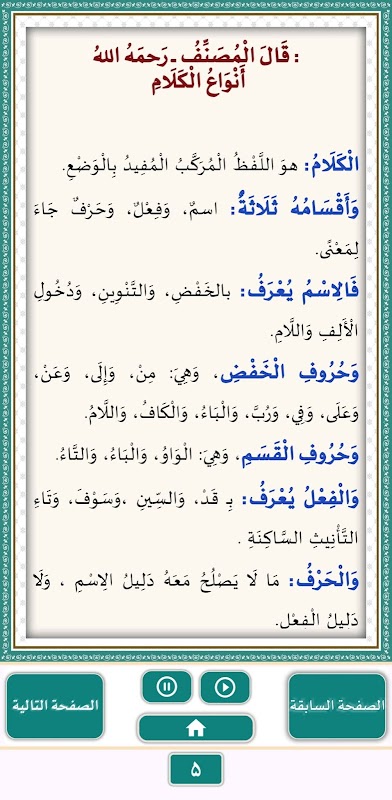 قَالَ الْمُصَنِّفُ ـ رَحمَهُ اللهُ :
أَنْوَاعُ الْكَلَامِ
الْكَلَامُ: هوَ اللَّفْظُ الْمُرَكَّبُ الْمُفِيدُ بِالْوَضْعِ.
وَأَقْسَامُهُ ثَلَاثَةٌ: اسمٌ، وَفِعْلٌ، وَحَرْفٌ جَاءَ
لِمَعْنًى.
فَالِاسْمُ يُعْرَفُ: بالخَفْضِ، وَالتَّنْوِينِ، وَدُخُولِ
الْأَلِفِ وَاللَّامِ.
وَحُرُوفِ الْخَفْضِ، وَهِيَ: مِنْ، وَإِلَى، وَعَنْ،
وَعَلَى، وَفِي، وَرُبَّ، وَالْبَاءُ، وَالْكَافُ، وَاللَّامُ.
وَحُرُوفِ الْقَسَمِ، وَهِيَ: الْوَاوُ، وَالْبَاءُ، وَالتَّاءُ.
وَالْفِعْلُ يُعْرَفُ: بِـ قَدْ، وَالسِّينِ ،وَسَوْفَ، وَتَاءِ
التَّأْنِيثِ السَّاكِنَةِ .
وَالْحَرْفُ: مَا لَا يَصْلُحُ مَعَهُ دَلِيلُ الِاسْمِ ، وَلَا
دَلِيلُ الْفِعْلِ.
الصفحة السابقة
الصفحة التالية
٥